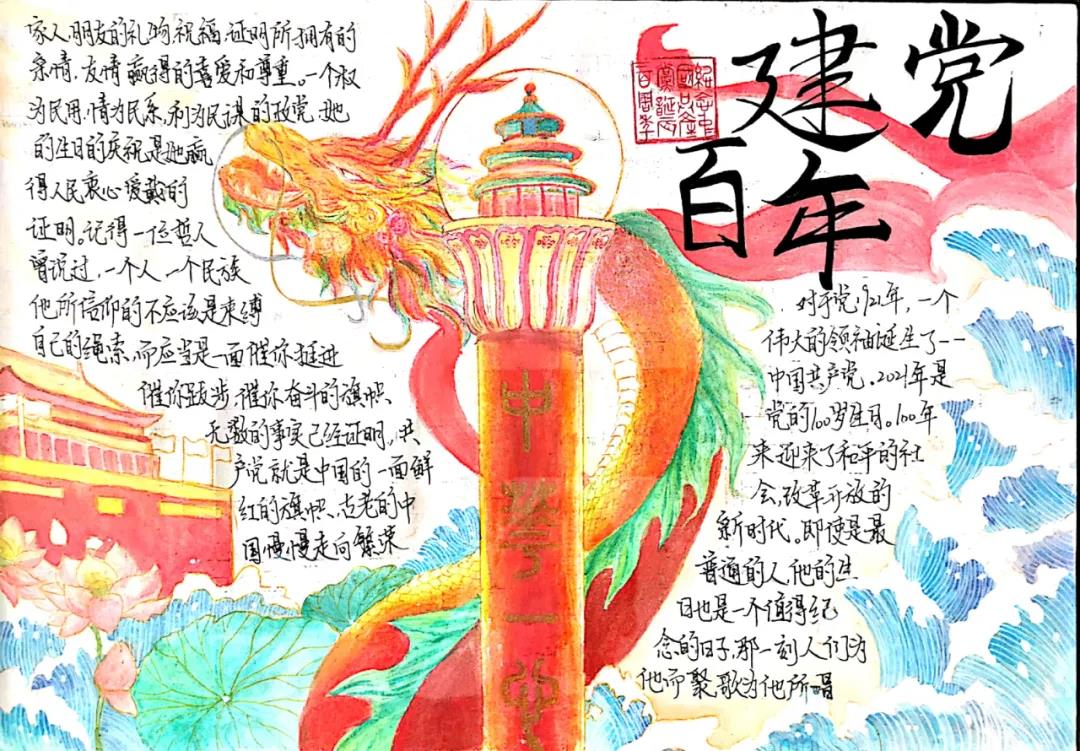 建党
百年
紀念中
國共產
黨誕辰
百周年
对于党,1921年,一个
伟大的领袖诞生了--
中国共产党.2021年是
党的100岁生日。100年
来,迎来了和平的社
会,改革开放的
新时代。即使是最
普通的人他的生
日也是一个值得纪
念的日子,那一刻人们为
他而聚歌为他所唱
家人,朋友的礼物祝福,证明所拥有的
亲情,友情赢得的喜爱和尊重。一个权
为民用,情为民系,利为民谋的政党,她
的生日的庆祝是她赢
得人民衷心爱戴的
证明。记得一位哲人
曾说过,一个人一个民族
他所信仰的不应该是束缚
自己的绳索、而应当是一面催你挺进
催你跋步,催你奋斗的旗帜、
无数的事实已经证明,共
产党就是中国的一面鲜
红的旗帜、古老的中
国慢慢走向繁荣
中
華
一